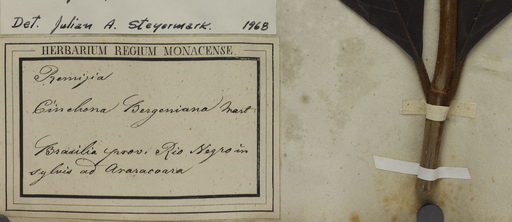 Det. Julian A. Steyermark. 1968
HERBARIUM REGIUM MONACENSE.
Remijia
Cinchona Bergeniana Mart
Brasilia prov. Rio Negro in
sylvis ad Araracoara